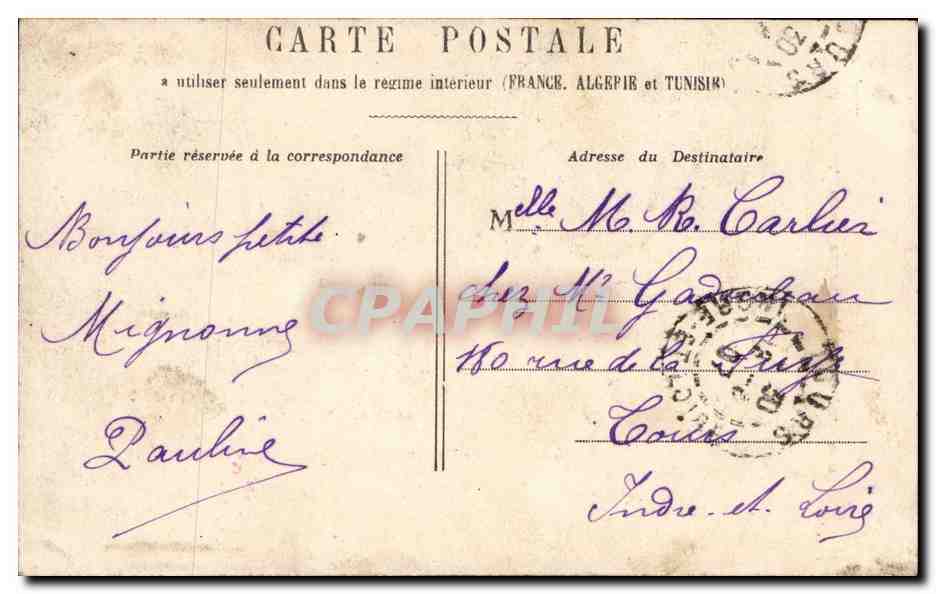 CARTE POSTALE
a utiliser seulement dans le régime intérieur (FRANCE, ALGERIE et TUNISIE)
Partie réservée à la correspondance
Bonjours petite
Mignonne
Pauline
Adresse du Destinataire
Melle M. R. Carlier
chez Mr
rue de la
Tours
Indre-et-Loire
CPAPHIL
TOURS
INDRE-ET-